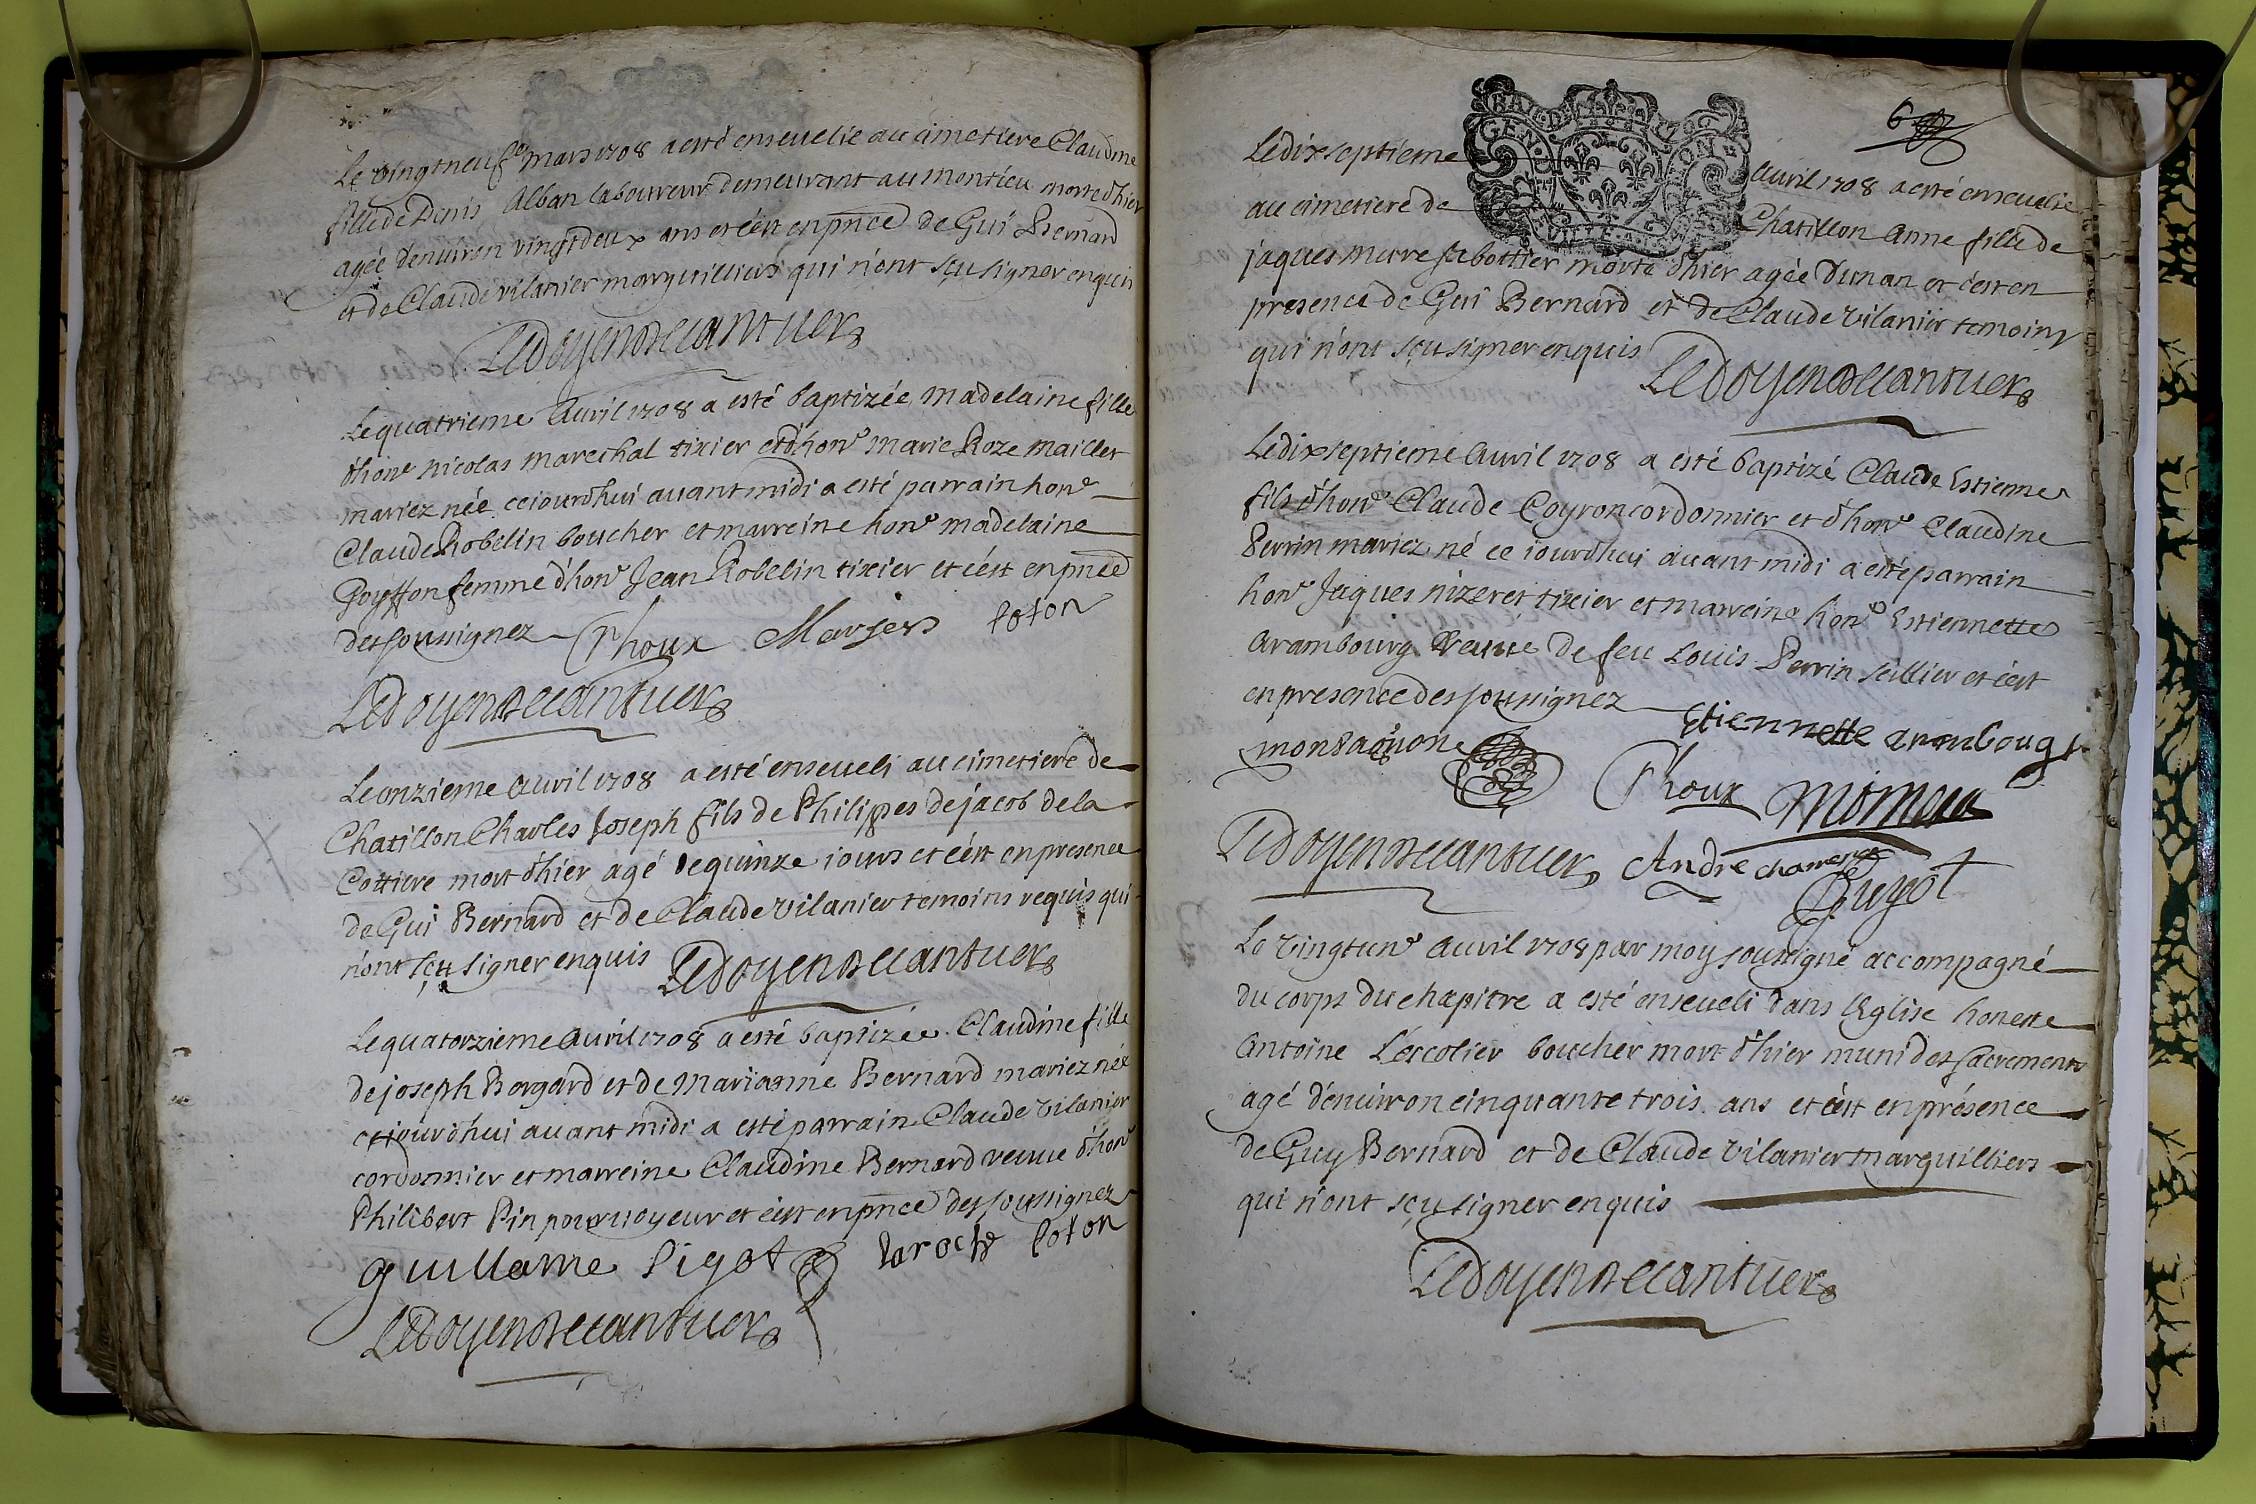 Le vingtneufe mars 1708 a esté ensevelie au cimetiere Claudine
fille de Denis Alban laboureur demeurant au montieu morte d'hier
agée d'environ vingtdeux ans et c'est en pnce de Gui Bernard
et de Claude vilanier marguilliers qui n'ont sçu signer enquis
Ledoyendecantuer
Le quatrieme Avril 1708 a esté baptizée madelaine fille
d'hone nicolas marechal tixier et d'hone marie Roze maillet
mariez née cejourd'hui avant midi a esté parrain hone
Claude Robelin boucher et marreine hone madelaine
Goyffon femme d'hone Jean Robelin tixier et c'est en pnce
des soussignez Choux Marjers poton
Ledoyendecantuer
Le onzieme avril 1708 a esté enseveli au cimetiere de
Chatillon Charles Joseph fils de Philippes de jacob de la
Cottiere mort d'hier agé de quinze iours et c'est en presence
de Gui Bernard et de Claude vilanier temoins requis qui
n'ont sçu signer enquis Ledoyendecantuer
Le quatorzieme Avril 1708 a esté baptizée Claudine fille
de joseph Borgard et de marianne Bernard mariez née
cejourd'hui avant midi a esté parrain Claude vilanier
cordonnier et marreine Claudine Bernard veuve d'hone
Philibert Pin pourvoyeur et c'est en pnce des soussignez
guillame pigot laroche poton
Ledoyendecantuer
6
GEN. DE LYON
Le dixseptieme Avril 1708 a esté ensevelie
au cimetiere de Chatillon Anne fille de
jaques mure sabottier morte d'hier agée d'un an et c'est en
presence de Gui Bernard et de Claude vilanier temoins
qui n'ont sçu signer enquis
Ledoyendecantuer
Le dixseptieme Avril 1708 a esté baptizé Claude Estienne
fils d'hone Claude Coyron cordonnier et d'hone Claudine
Perrin mariez né ce iourd'hui avant midi a esté parrain
hone Jaques nizeret tixier et marreine hone Estiennette
arambourg veuve de feu Louis Perrin sellier et c'est
en presence des soussignez Etiennette arambourg
Choux
Ledoyendecantuer André Guyot
Le vingtune Avril 1708 par moy soussigné accompagné
du corps du chapitre a esté enseveli dans l'Eglise honeste
Antoine L'escolier boucher mort d'hier muni des sacrements
agé d'environ cinquante trois ans et c'est en présence
de Guy Bernard et de Claude vilanier marguilliers
qui n'ont sçu signer enquis
Ledoyendecantuer